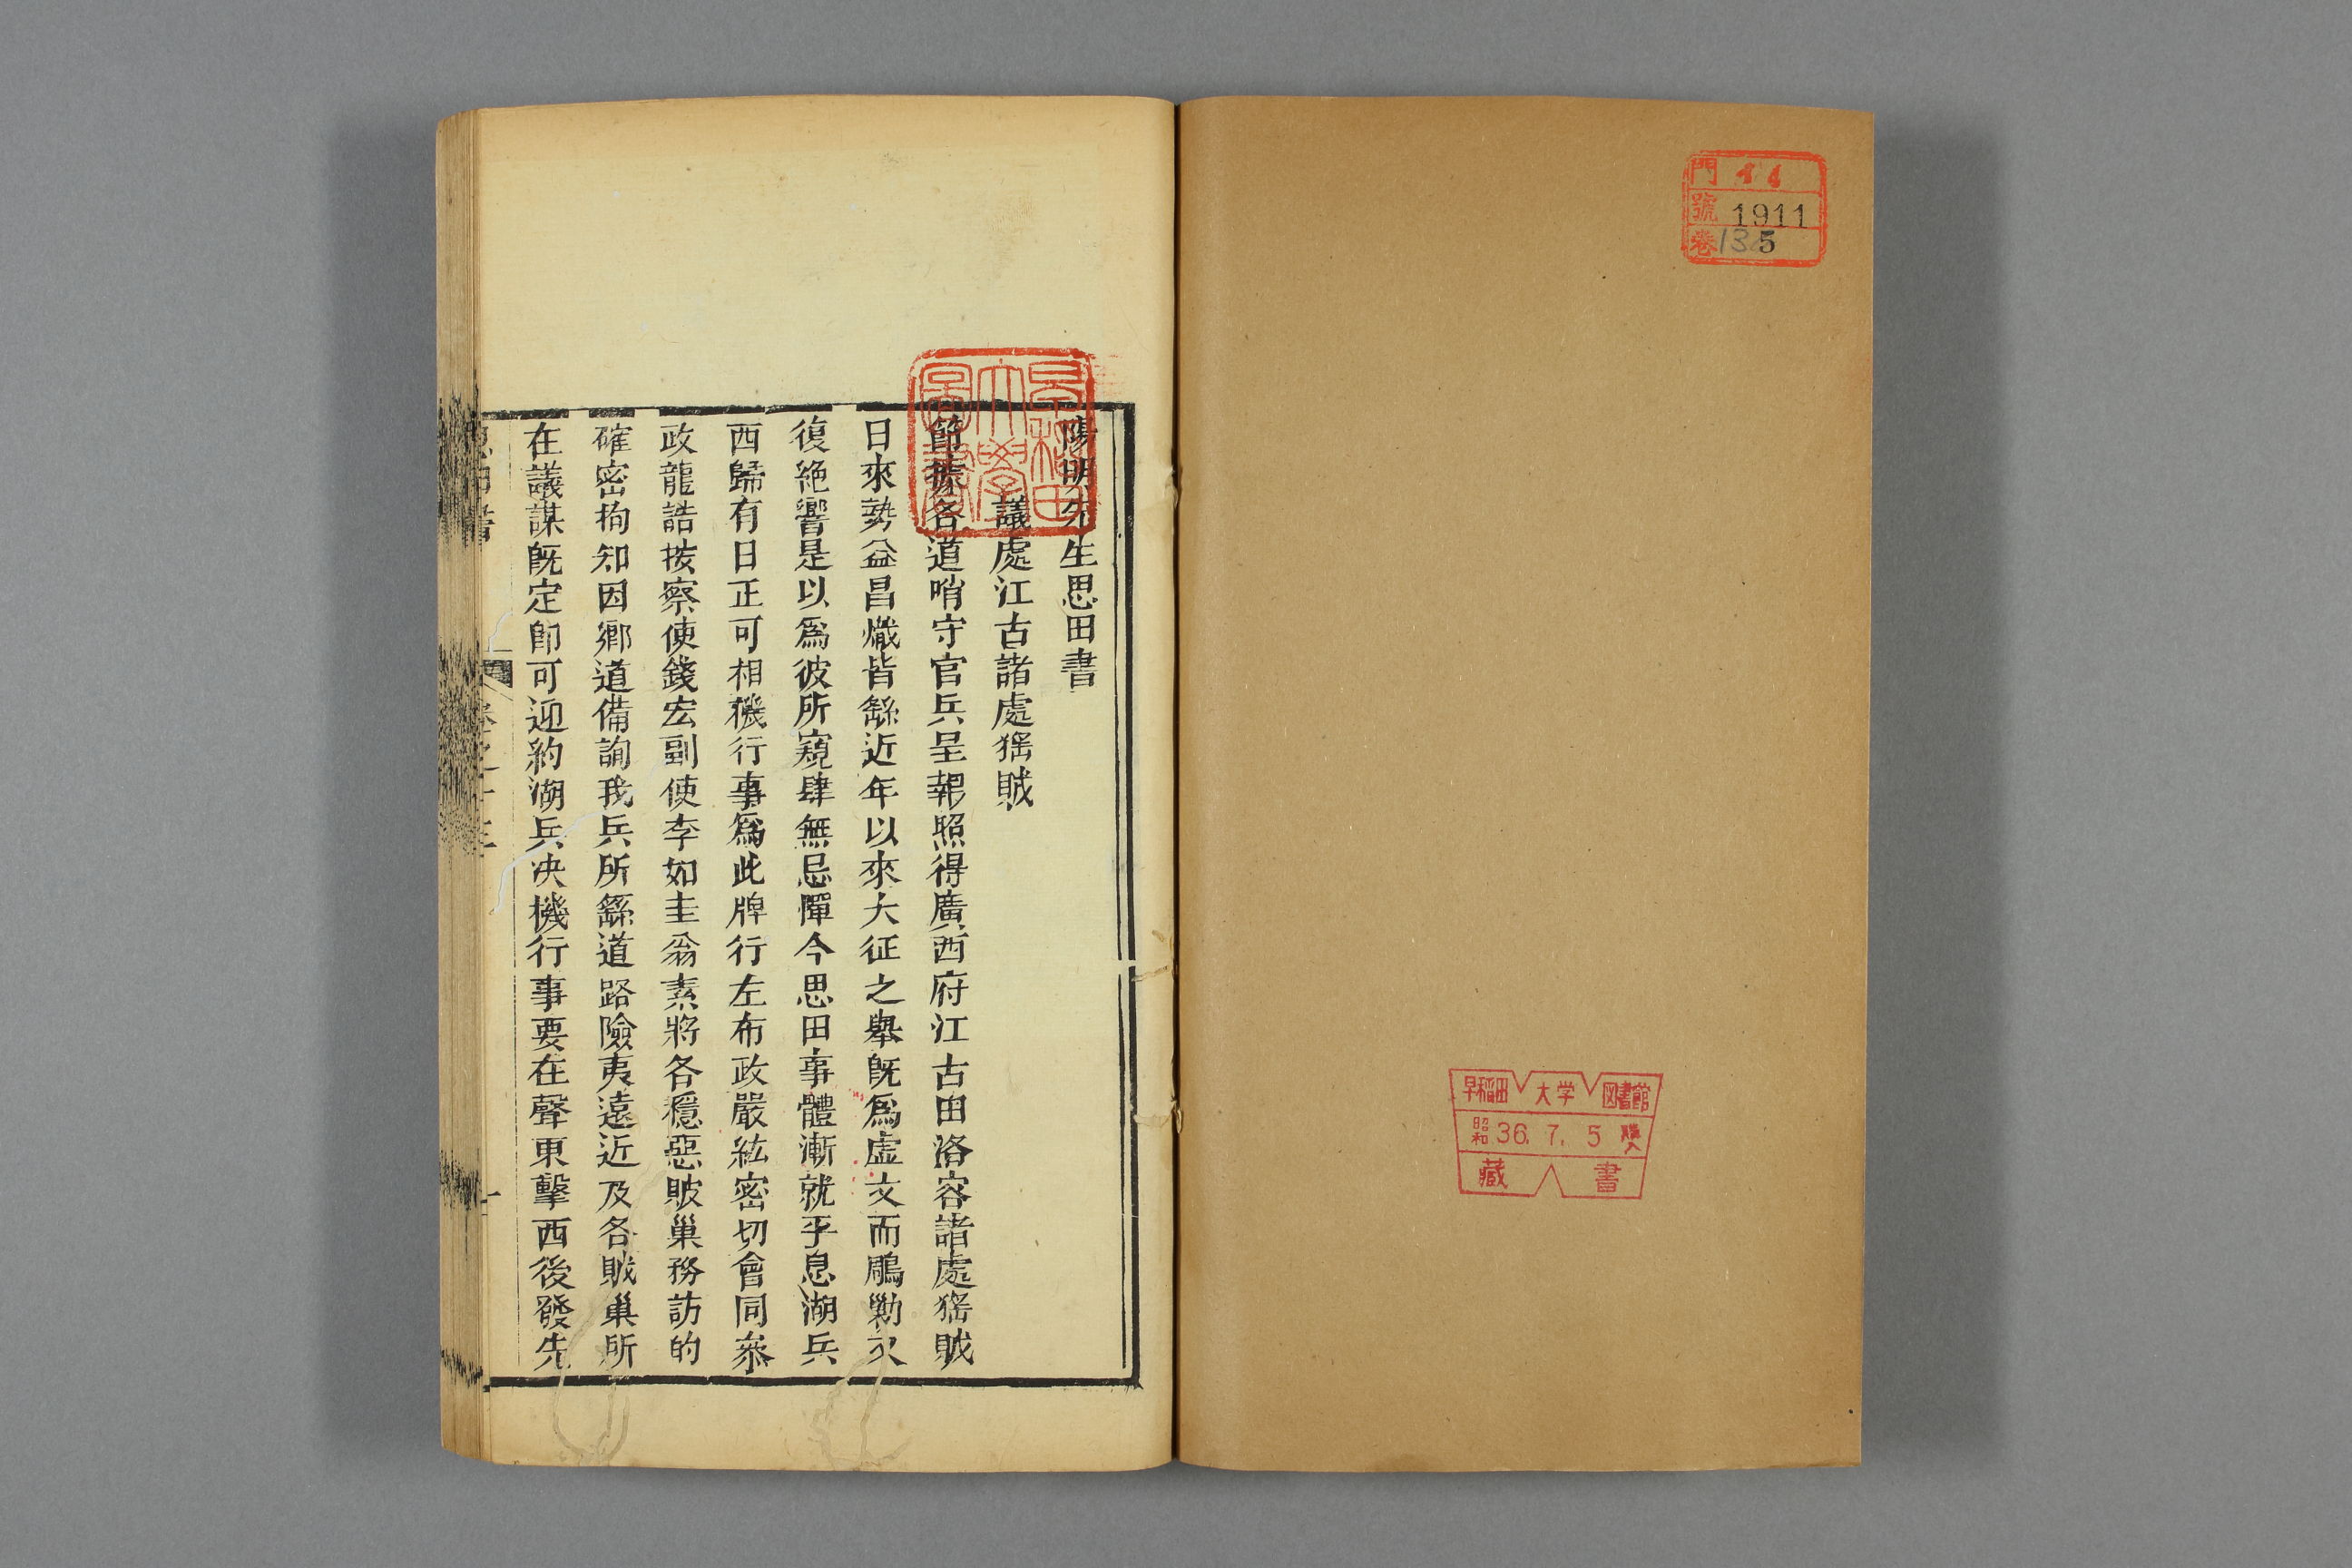 門
號 1911
卷 13 5
早稲田 大学 図書館
昭和 36. 7. 5 購入
藏書
早稲田大學圖書
陽明先生思田書
議處江古諸處猺賊
節據各道哨守官兵呈報照得廣西府江古田洛容諸處猺賊
日來勢益昌熾皆繇近年以來大征之舉旣爲虛文而鵰勦久
復絶響是以爲彼所窺肆無忌憚今思田事體漸就平息湖兵
西歸有日正可相機行事爲此牌行左布政嚴紘密切會同叅
政龍誥按察使錢宏副使李如圭翁素將各穩惡賊巢務訪的
確密拘知因鄉道備詢我兵所繇道路險夷遠近及各賊巢所
在議謀旣定卽可迎約湖兵决機行事要在聲東擊西後發先
思田書 卷之十三 一